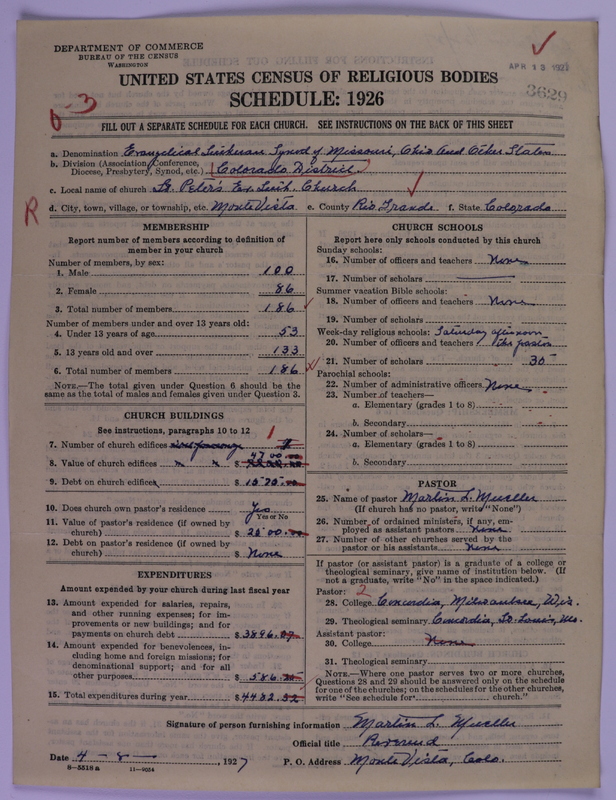 DEPARTMENT OF COMMERCE
BUREAU OF THE CENSUS
WASHINGTON
APR 13 1927
3629
UNITED STATES CENSUS OF RELIGIOUS BODIES
SCHEDULE: 1926
6-3
FILL OUT A SEPARATE SCHEDULE FOR EACH CHURCH. SEE INSTRUCTIONS ON THE BACK OF THIS SHEET
a. Denomination Evangelical Lutheran Synod of Missouri, Ohio and Other States
b. Division (Association, Conference, Diocese, Presbytery, Synod, etc.) (Colorado District)
c. Local name of church St. Peter's Ev. Luth. Church
R
d. City, town, village, or township, etc. Monte Vista e. County Rio Grande f. State Colorado
MEMBERSHIP
Report number of members according to definition of
member in your church
Number of members, by sex:
1. Male 100
2. Female 86
3. Total number of members 186
Number of members under and over 13 years old:
4. Under 13 years of age 53
5. 13 years old and over 133
6. Total number of members 186
NOTE.—The total given under Question 6 should be
same as the total of males and females given under Question 3.
CHURCH BUILDINGS
See instructions, paragraphs 10 to 12
7. Number of church edifices 1
8. Value of church edifices $ 4700.00
9. Debt on church edifices $ 1070.00
10. Does church own pastor's residence Yes
Yes or No
11. Value of pastor's residence (if owned by
church) $ 2000.00
12. Debt on pastor's residence (if owned by
church) $ None
EXPENDITURES
Amount expended by your church during last fiscal year
13. Amount expended for salaries, repairs,
and other running expenses; for im-
provements or new buildings; and for
payments on church debt $3896.07
14. Amount expended for benevolences, in-
cluding home and foreign missions; for
denominational support; and for all
other purposes $586.25
15. Total expenditures during year $4482.32
CHURCH SCHOOLS
Report here only schools conducted by this church
Sunday schools:
16. Number of officers and teachers None
17. Number of scholars
Summer vacation Bible schools:
18. Number of officers and teachers None
19. Number of scholars
Week-day religious schools: Saturday afternoon
20. Number of officers and teachers 1 the pastor
21. Number of scholars 30
Parochial schools:
22. Number of administrative officers None
23. Number of teachers—
a. Elementary (grades 1 to 8)
b. Secondary
24. Number of scholars—
a. Elementary (grades 1 to 8)
b. Secondary
PASTOR
25. Name of pastor Martin L. Mueller
(If church has no pastor, write "None")
26. Number of ordained ministers, if any, em-
ployed as assistant pastors None
27. Number of other churches served by the
pastor or his assistants None
If pastor (or assistant pastor) is a graduate of a college or
theological seminary, give name of institution below. (If
not a graduate, write "No" in the space indicated.)
Pastor: 2
28. College Concordia, Milwaukee, Wis.
29. Theological seminary Concordia, St. Louis, Mo.
Assistant pastor:
30. College None
31. Theological seminary
NOTE.—Where one pastor serves two or more churches,
Questions 28 and 29 should be answered only on the schedule
for one of the churches; on the schedules for the other churches,
write "See schedule for church."
Signature of person furnishing information Martin L. Mueller
Official title Reverend
Date 4-8-, 1927 P. O. Address Monte Vista, Colo.
8-5518 a 11-9054